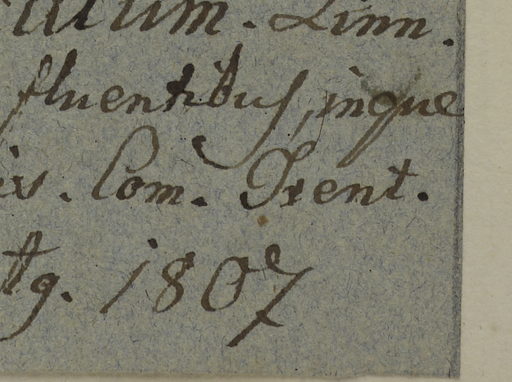 um. Linn.
fluentibus, inque
is. Com. Trent.
tg. 1807